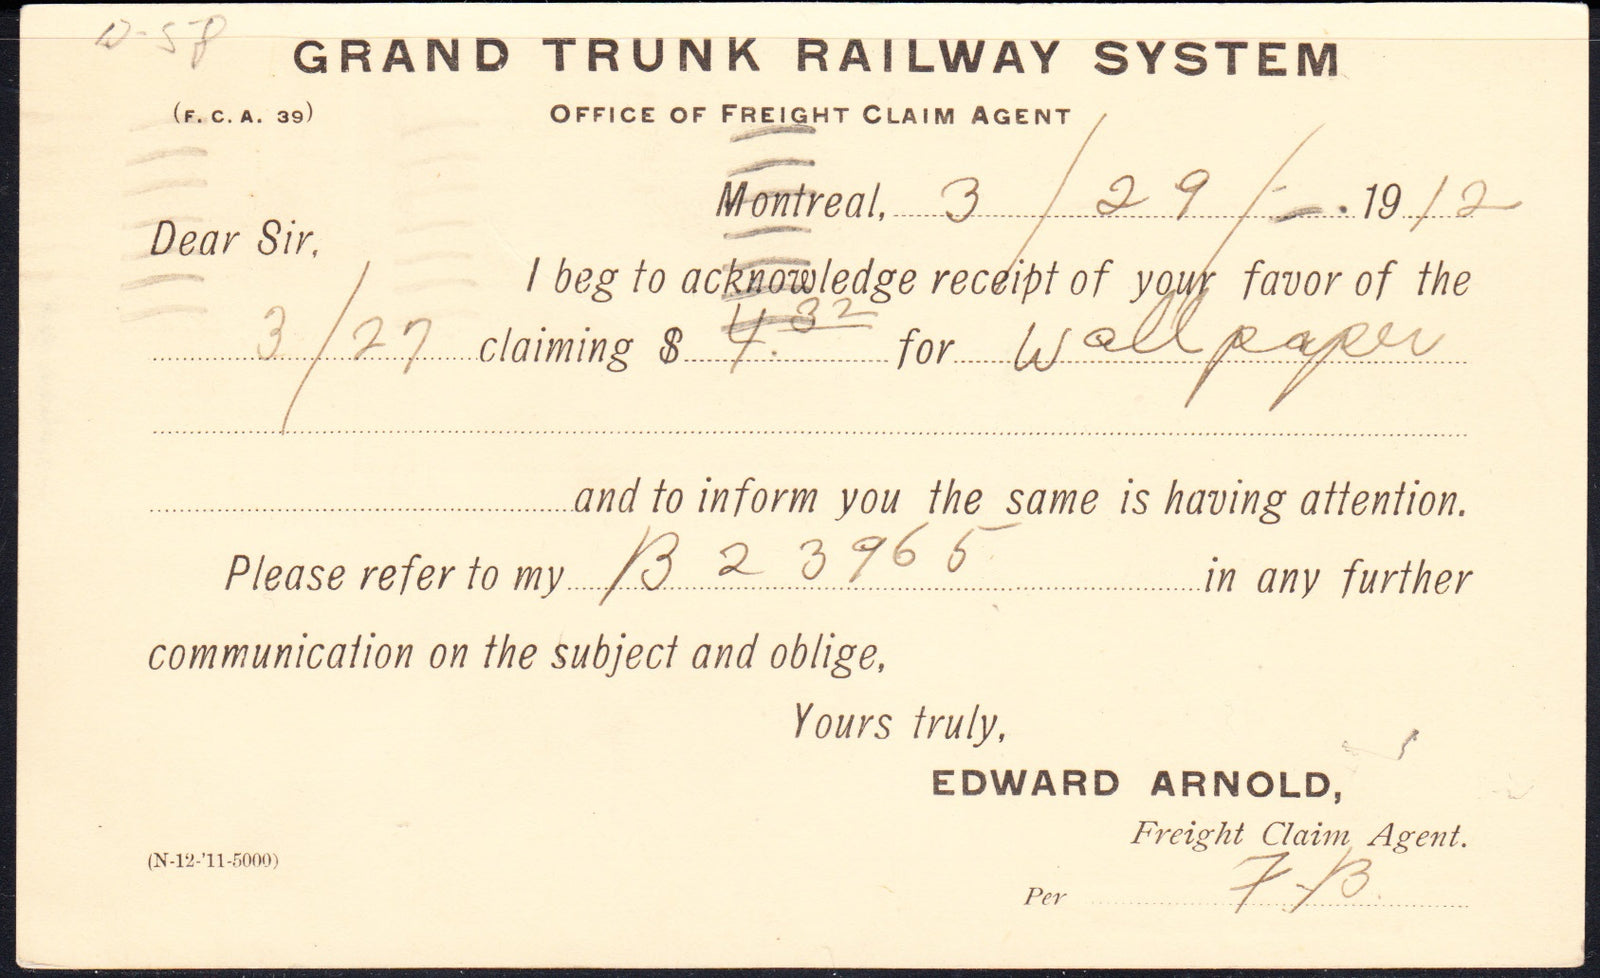 N-58
GRAND TRUNK RAILWAY SYSTEM
(F. C. A. 39) OFFICE OF FREIGHT CLAIM AGENT
Montreal, 3/29/- 1912
Dear Sir,
I beg to acknowledge receipt of your favor of the
3/27 claiming $ 4.32 for Wallpaper
and to inform you the same is having attention.
Please refer to my B 23965 in any further
communication on the subject and oblige,
Yours truly,
EDWARD ARNOLD,
Freight Claim Agent.
(N-12-'11-5000)
Per F-B